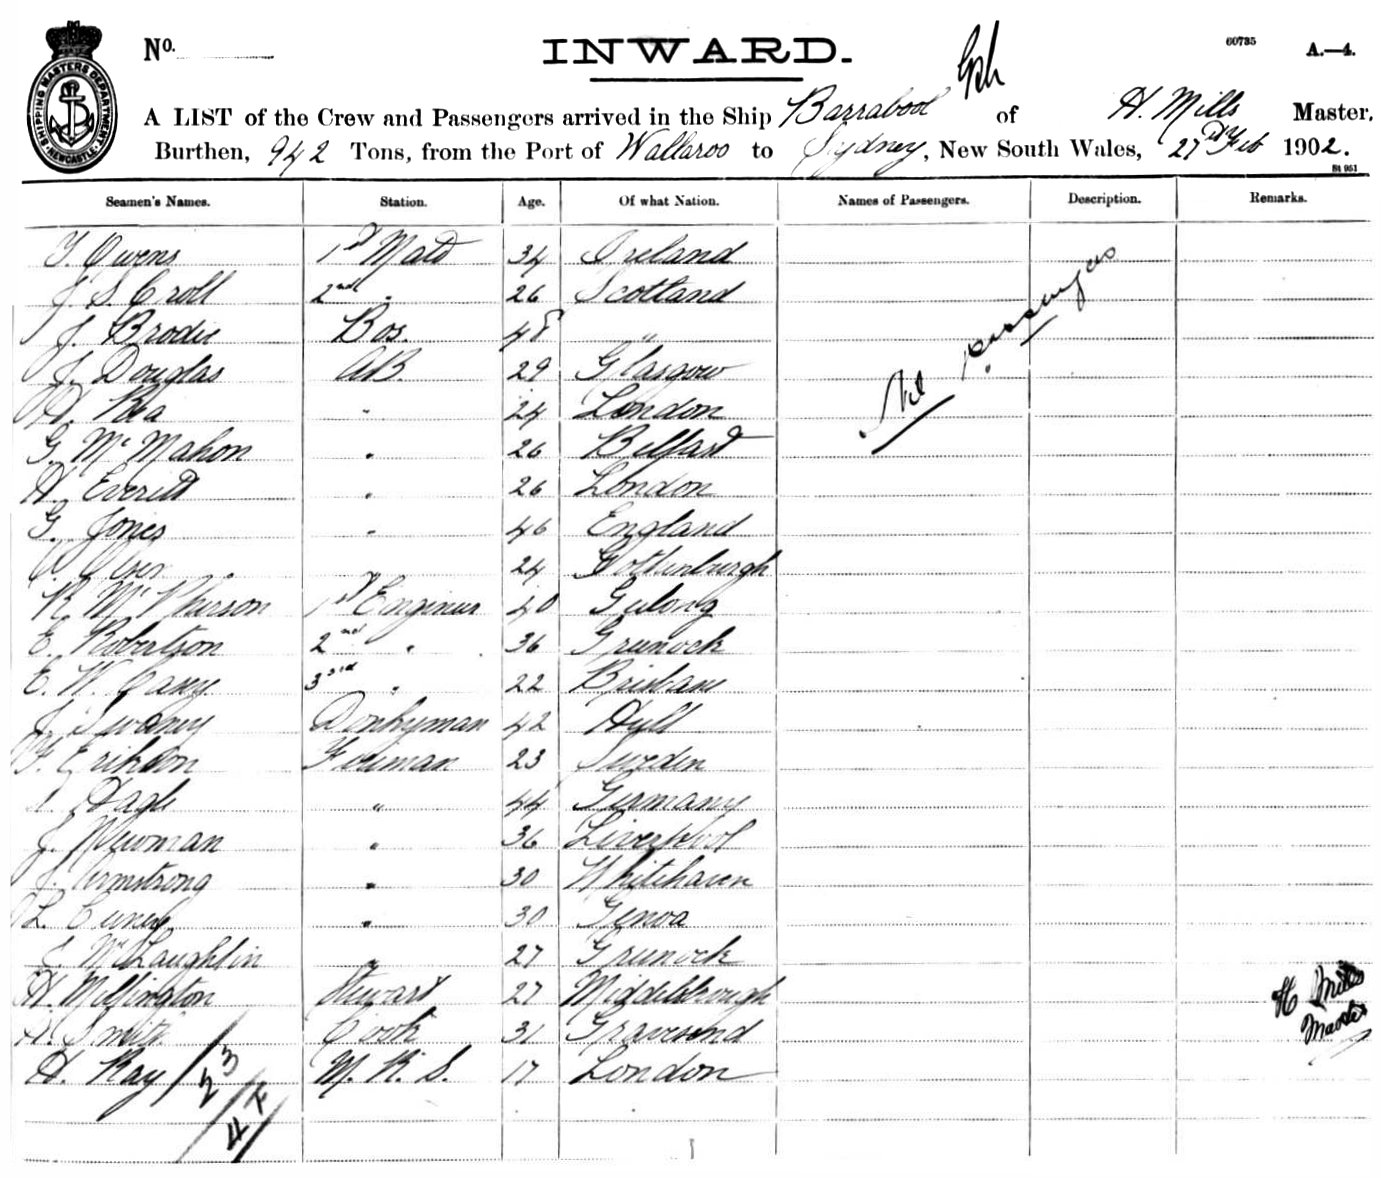 SHIPPING MASTERS DEPARTMENT. NEWCASTLE.
No. INWARD. 60735 A.—4.
A LIST of the Crew and Passengers arrived in the Ship Barrabool of H. Mills Master,
Burthen, 942 Tons, from the Port of Wallaroo to Sydney, New South Wales, 27th Feb 1902.
St 951
Seamen's Names. Station. Age. Of what Nation. Names of Passengers. Description. Remarks.
T. Owens 1st Mate 34 Ireland
J. S. Croll 2nd " 26 Scotland
J. Brodie Bos. 48 "
J. Douglas AB. 29 Glasgow
H. Rea " 24 London
G. McMahon " 26 Belfast
H. Everitt " 26 London
G. Jones " 46 England
24 Gottenburgh
R. McPherson 1st Engineer 40 Geelong
E. Robertson 2nd " 36 Greenock
E. W. Casey 3rd " 22 Brisbane
J. Sweeney Donkyman 42 Hull
F. Erikson Fireman 23 Sweden
Hagle " 44 Germany
J. Newman " 36 Liverpool
J. Armstrong " 30 Whitehaven
L. " 30 Genoa
McLaughlin " 27 Greenock
H. Millington Stewart 27 Middelsbrough
Smith Cook 31 Gravesend
H. Ray M. R. S. 17 London
Nil Passengers
H Mills
Master
23